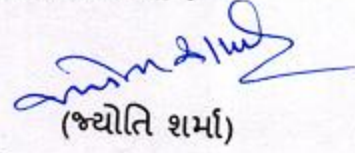 (જ્યોતિ શર્મા)